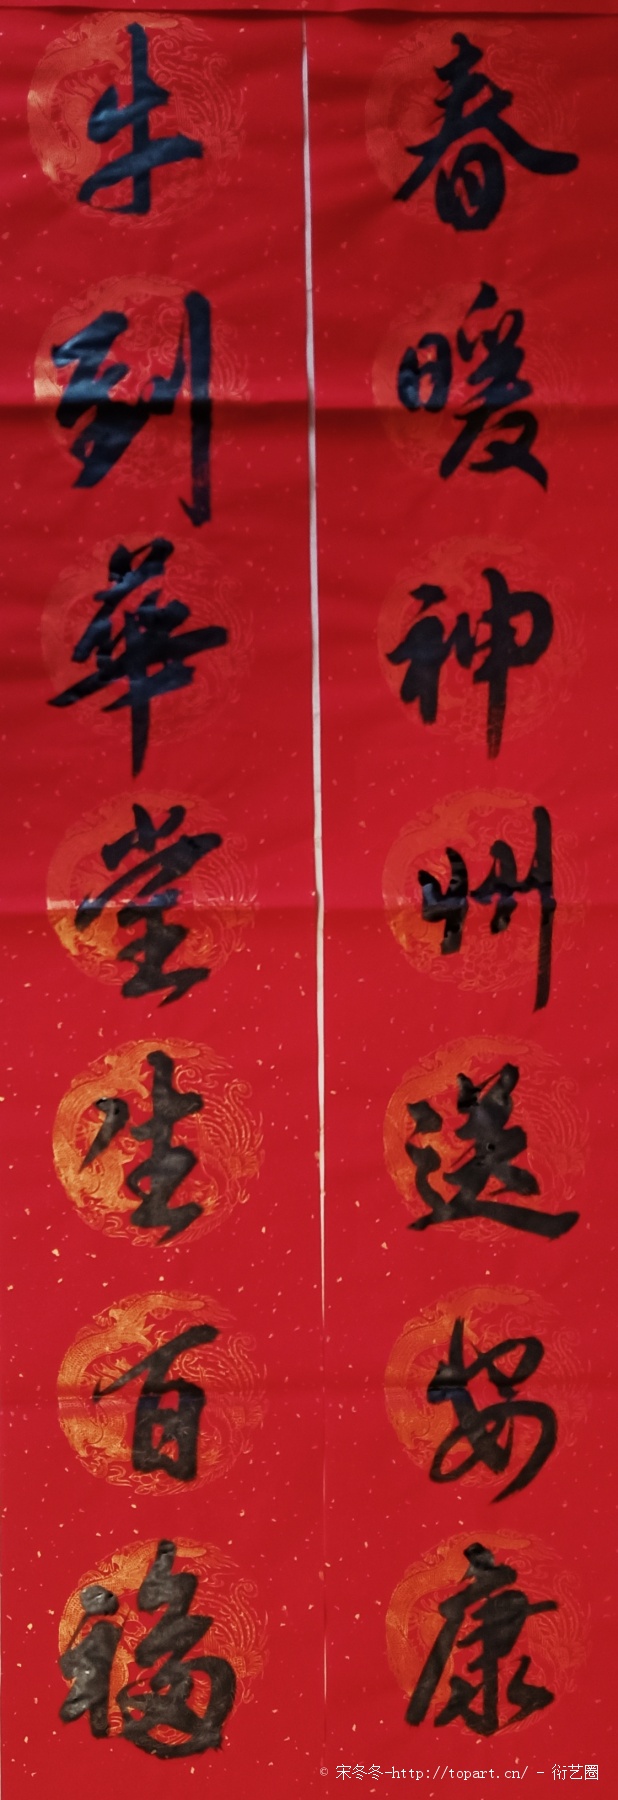 春暖神州送安康
牛到華堂生百福
© 宋冬冬-http://topart.cn/ - 衍艺圈